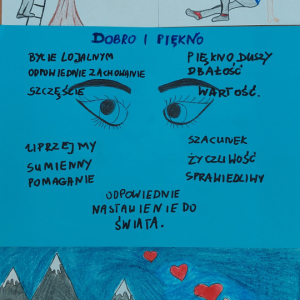 DOBRO I PIĘKNO
BYCIE LOJALNYM
ODPOWIEDNIE ZACHOWANIE
SZCZĘŚCIE
PIĘKNO DUSZY
DBAŁOŚĆ
WARTOŚĆ.
UPRZEJMY
SUMIENNY
POMAGANIE
SZACUNEK
ŻYCZLIWOŚĆ
SPRAWIEDLIWY
ODPOWIEDNIE
NASTAWIENIE DO
ŚWIATA.